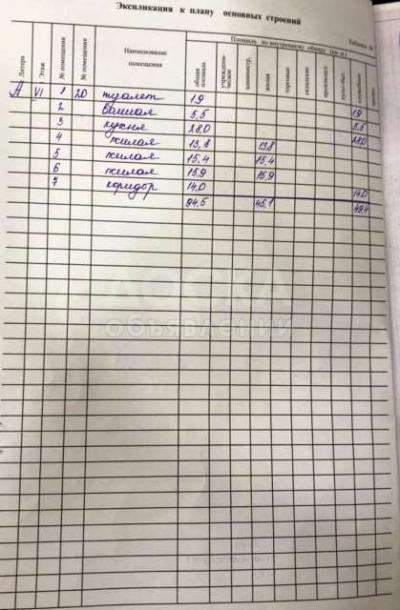 Экспликация к плану основных строений
Таблица №
Площадь по внутреннему обмеру (кв. м.)
Литера
Этаж
№ помещения
№ помещения
Наименование помещения
общая площадь
жилая
торговая
складская
А VI 1 20 туалет 1,9 1,9
2 ванная 5,5 5,5
3 кухня 28,0 28,0
4 жилая 13,8 13,8
5 жилая 15,4 15,4
6 жилая 15,9 15,9
7 коридор 14,0 14,0
94,5 45,1 49,4
ДОСКА
объявлений